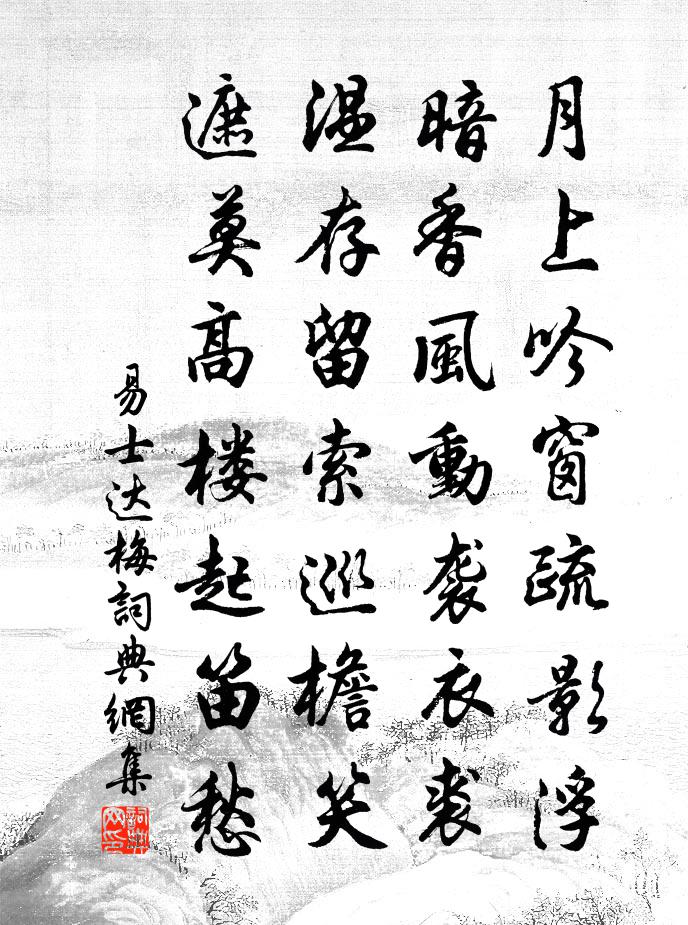 月上吟窗疏影浮
暗香風動袭衣裘
温存留索巡檐笑
遮莫高楼起笛愁
易士达梅詞典網集